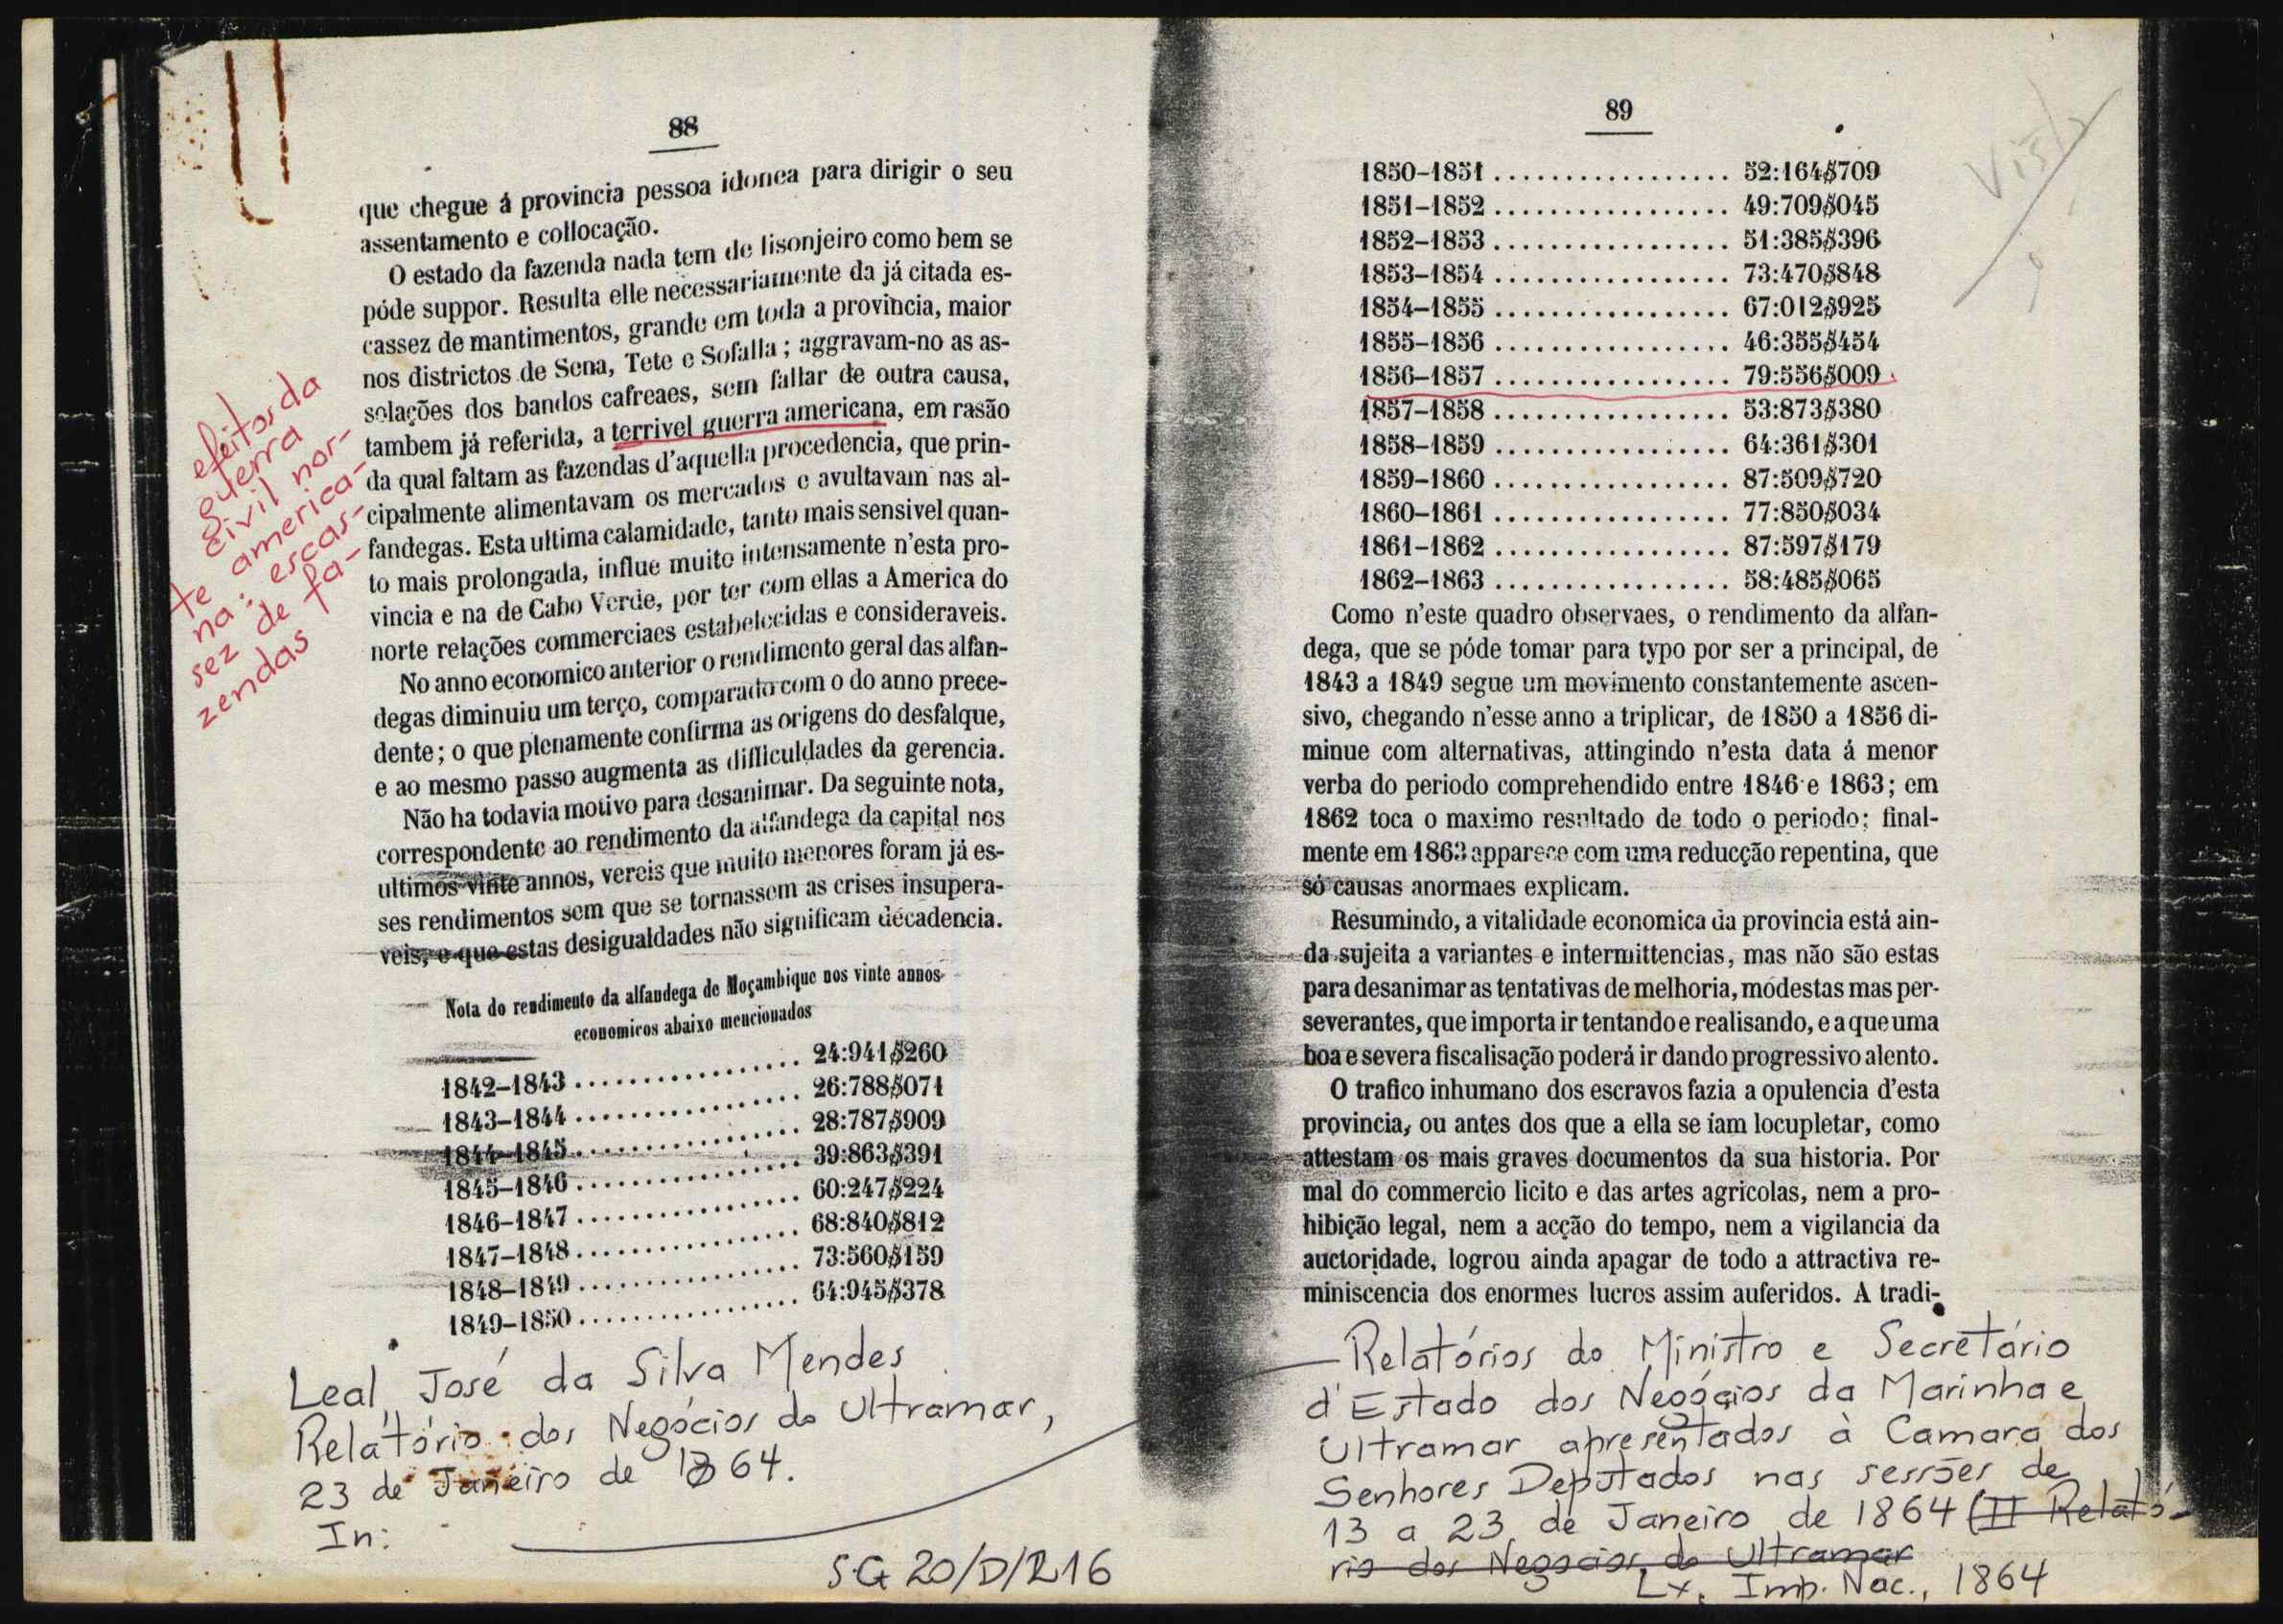 88
que chegue á provincia pessoa idonea para dirigir o seu
assentamento e collocação.
O estado da fazenda nada tem de lisonjeiro como bem se
póde suppor. Resulta elle necessariamente da já citada es-
cassez de mantimentos, grande em toda a provincia, maior
nos districtos de Sena, Tete e Sofalla; aggravam-no as as-
solações dos bandos cafreaes, sem fallar de outra causa,
tambem já referida, a terrivel guerra americana, em rasão
da qual faltam as fazendas d'aquella procedencia, que prin-
cipalmente alimentavam os mercados e avultavam nas al-
fandegas. Esta ultima calamidade, tanto mais sensivel quan-
to mais prolongada, influe muito intensamente n'esta pro-
vincia e na de Cabo Verde, por ter com ellas a America do
norte relações commerciaes estabelecidas e consideraveis.
No anno economico anterior o rendimento geral das alfan-
degas diminuiu um terço, comparado com o do anno prece-
dente; o que plenamente confirma as origens do desfalque,
e ao mesmo passo augmenta as difficuldades da gerencia.
Não ha todavia motivo para desanimar. Da seguinte nota,
correspondente ao rendimento da alfandega da capital nos
ultimos vinte annos, vereis que muito menores foram já es-
ses rendimentos sem que se tornassem as crises insupera-
veis, e que estas desigualdades não significam decadencia.
Nota do rendimento da alfandega de Moçambique nos vinte annos
economicos abaixo mencionados
1842-1843 ................. 24:941$260
1843-1844 ................. 26:788$071
1844-1845 ................. 28:787$909
1845-1846 ................. 39:863$391
1846-1847 ................. 60:247$224
1847-1848 ................. 68:840$812
1848-1849 ................. 73:560$159
1849-1850 ................. 64:945$378
efeitos da
guerra
civil nor-
te america-
na: escas-
sez de fa-
zendas
Leal, José da Silva Mendes
Relatório dos Negócios do Ultramar,
23 de Janeiro de 1864.
In:
SG 20/D/216
89
1850-1851 ................. 52:164$709
1851-1852 ................. 49:709$045
1852-1853 ................. 51:385$396
1853-1854 ................. 73:470$848
1854-1855 ................. 67:012$925
1855-1856 ................. 46:355$454
1856-1857 ................. 79:556$009
1857-1858 ................. 53:873$380
1858-1859 ................. 64:361$301
1859-1860 ................. 87:509$720
1860-1861 ................. 77:850$034
1861-1862 ................. 87:597$179
1862-1863 ................. 58:485$065
Como n'este quadro observaes, o rendimento da alfan-
dega, que se póde tomar para typo por ser a principal, de
1843 a 1849 segue um movimento constantemente ascen-
sivo, chegando n'esse anno a triplicar, de 1850 a 1856 di-
minue com alternativas, attingindo n'esta data á menor
verba do periodo comprehendido entre 1846 e 1863; em
1862 toca o maximo resultado de todo o periodo; final-
mente em 1863 apparece com uma reducção repentina, que
só causas anormaes explicam.
Resumindo, a vitalidade economica da provincia está ain-
da sujeita a variantes e intermittencias, mas não são estas
para desanimar as tentativas de melhoria, modestas mas per-
severantes, que importa ir tentando e realisando, e a que uma
boa e severa fiscalisação poderá ir dando progressivo alento.
O trafico inhumano dos escravos fazia a opulencia d'esta
provincia, ou antes dos que a ella se íam locupletar, como
attestam os mais graves documentos da sua historia. Por
mal do commercio licito e das artes agricolas, nem a pro-
hibição legal, nem a acção do tempo, nem a vigilancia da
auctoridade, logrou ainda apagar de todo a attractiva re-
miniscencia dos enormes lucros assim auferidos. A tradi-
Relatórios do Ministro e Secretário
d'Estado dos Negócios da Marinha e
Ultramar apresentados à Camara dos
Senhores Deputados nas sessões de
13 a 23 de Janeiro de 1864 (II Relató-
rio dos Negocios do Ultramar
Lx, Imp. Nac., 1864